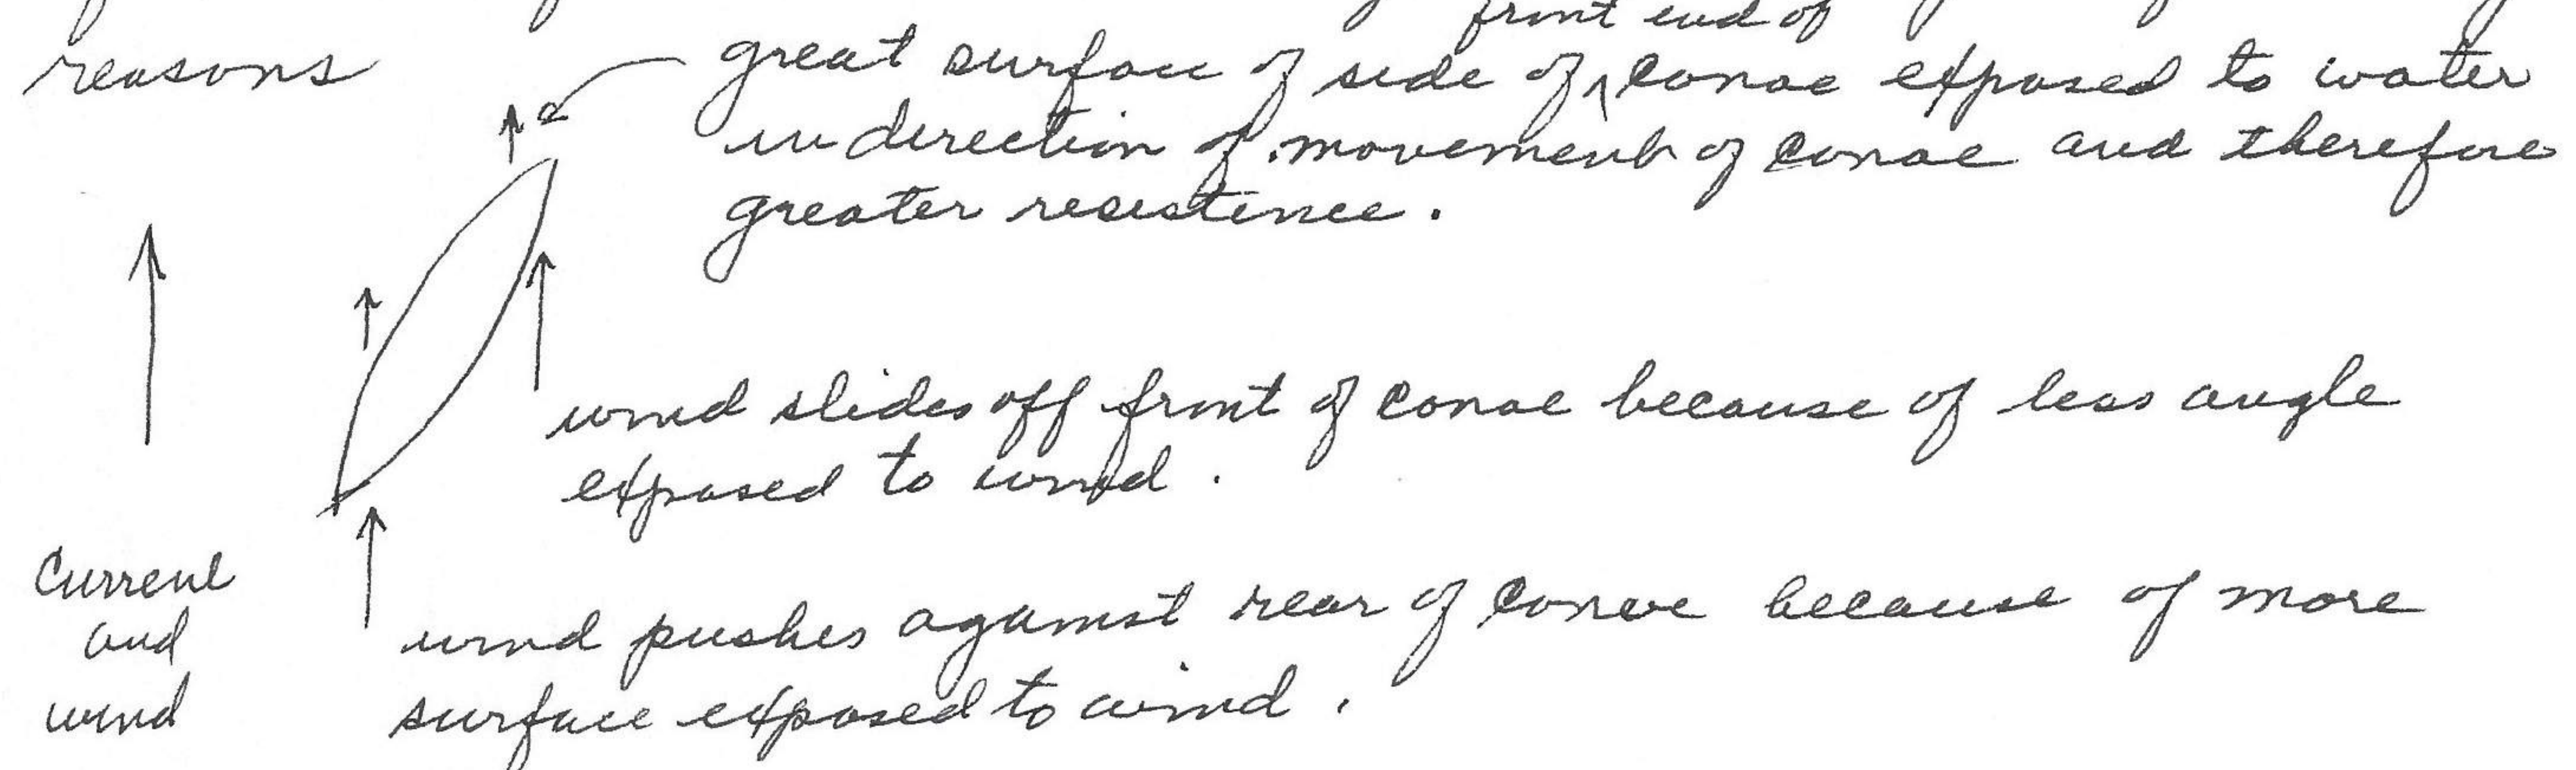 reasons
front end of
great surface of side of ^ conoe exposed to water
in direction of movement of conoe and therefore
greater resistence.
wind slides off front of conoe because of less angle
exposed to wind.
Current
and
wind
wind pushes against rear of conoe because of more
surface exposed to wind.